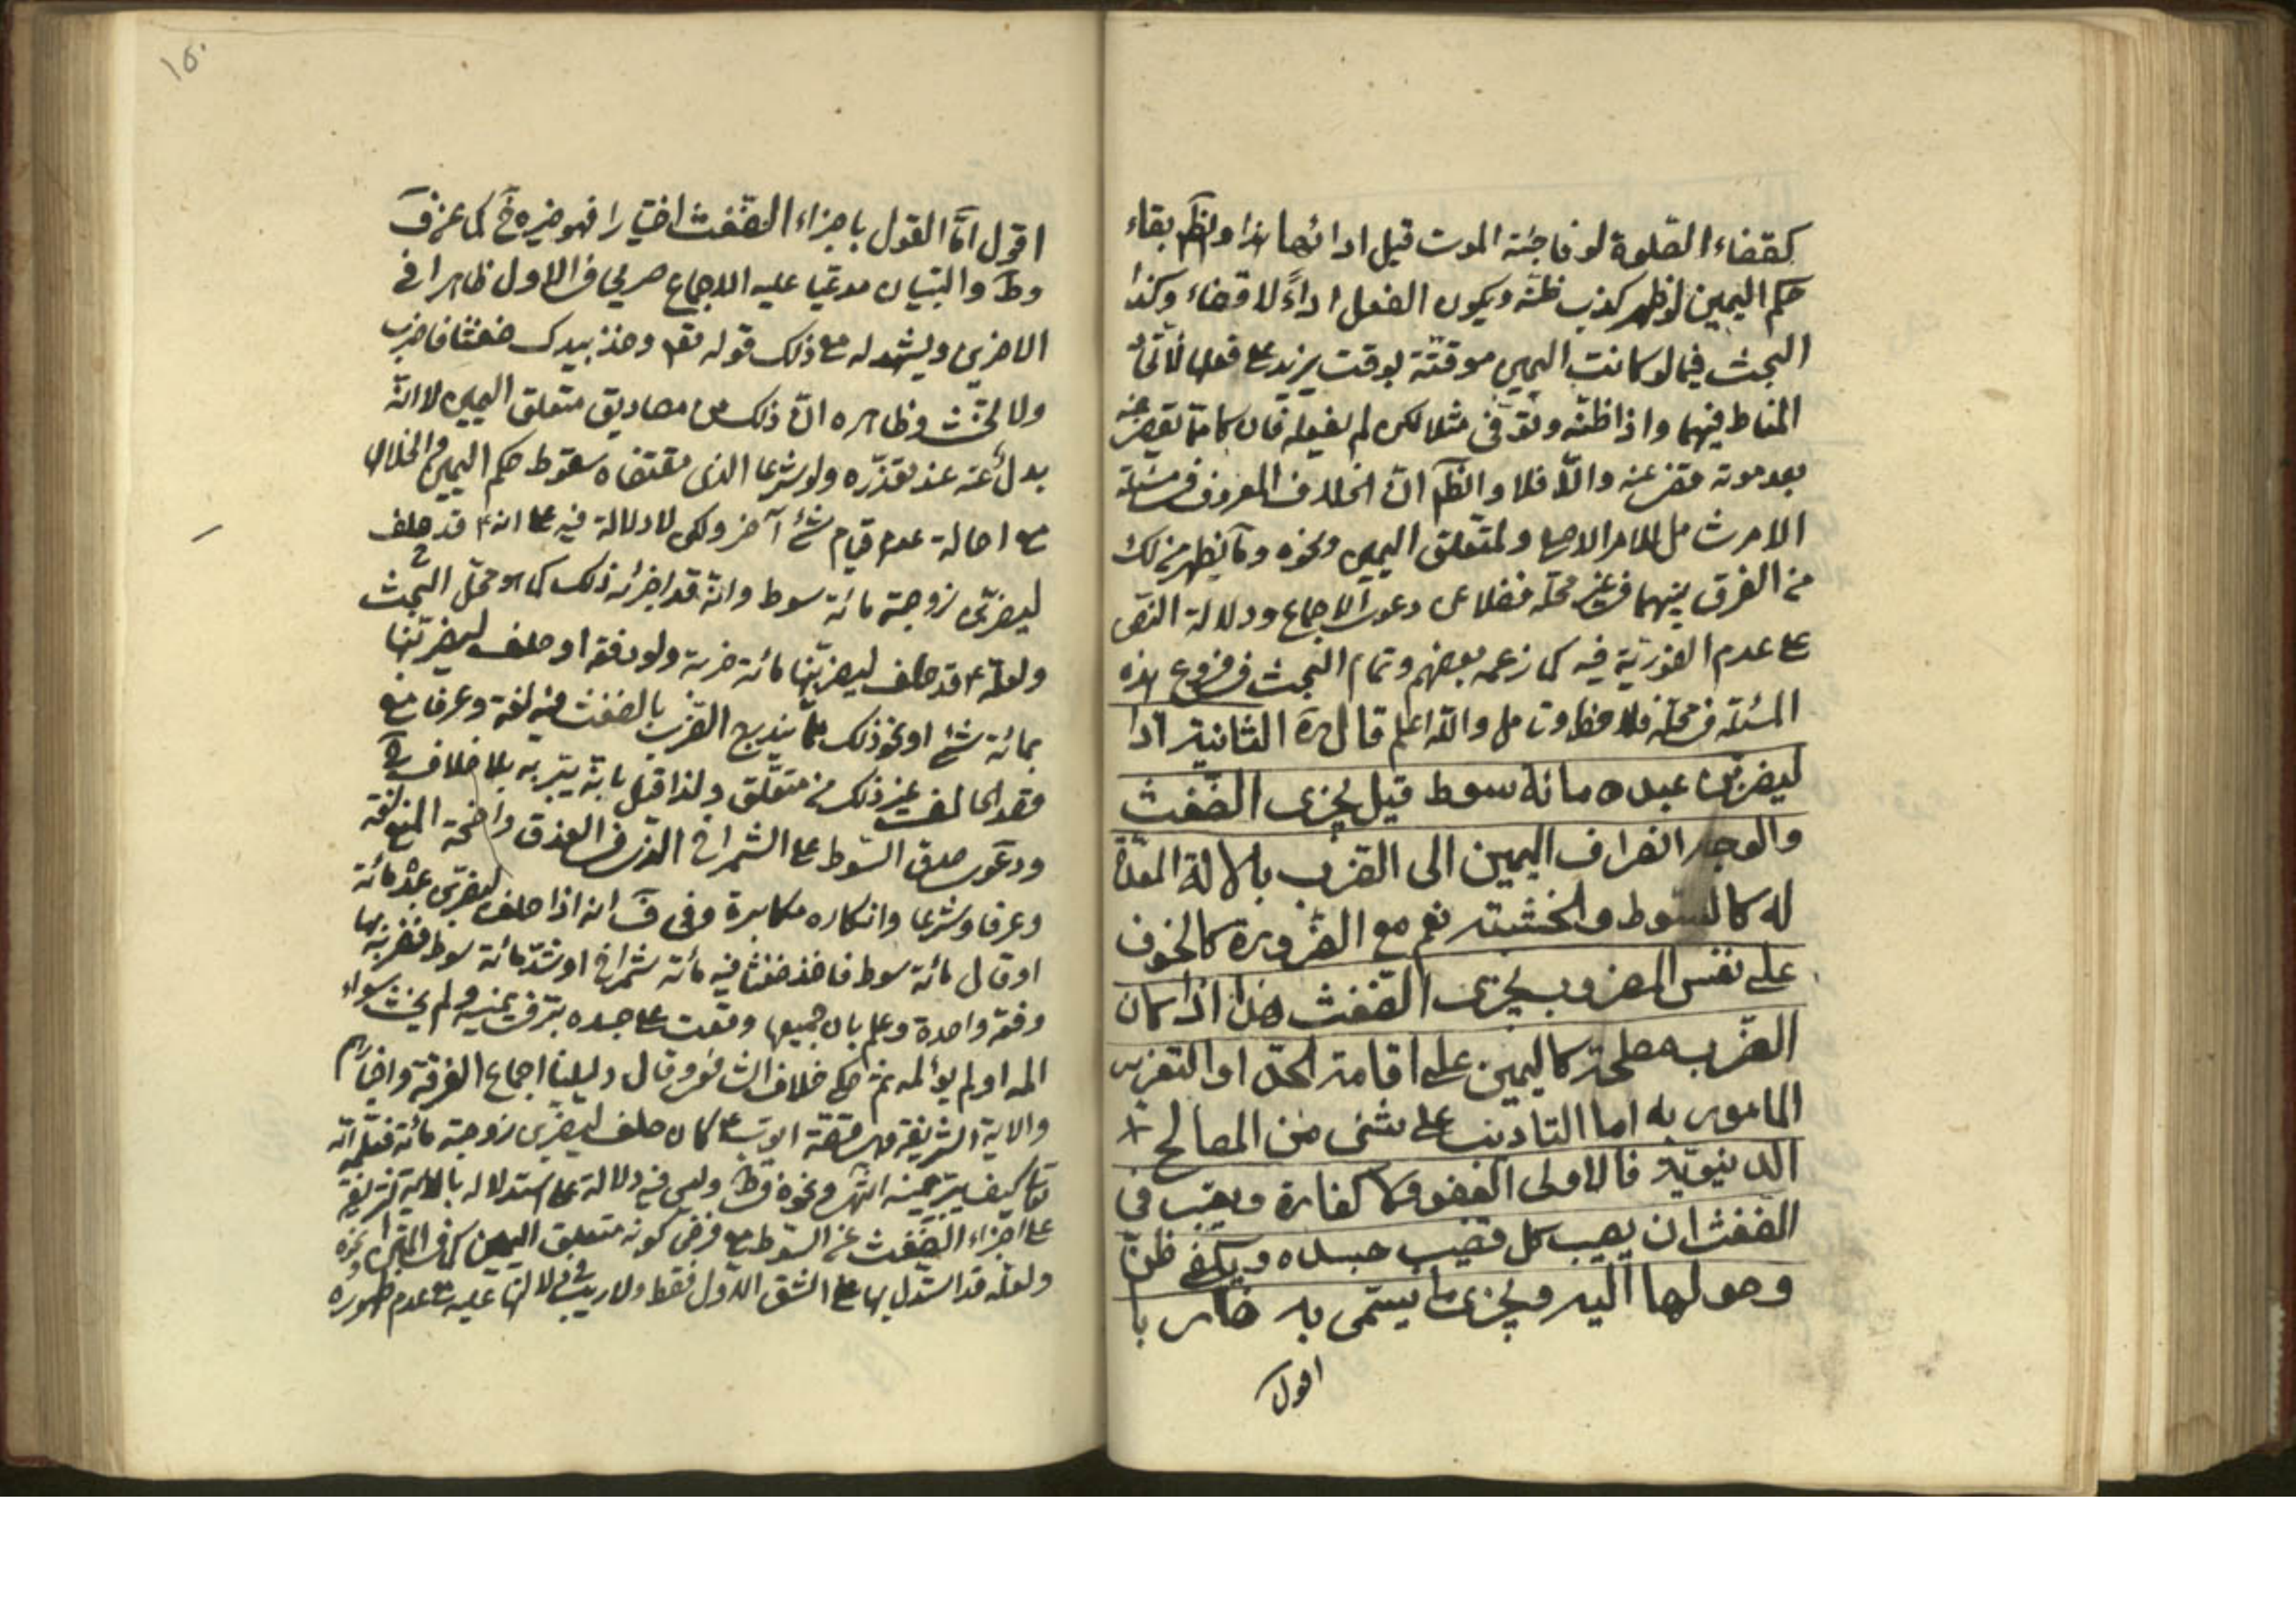 كقضاء الصلوة لو فاجئه الموت قبل ادائها هذا والظ بقاء
حكم اليمين لو ظهر كذب ظنه ويكون الفعل اداءً لا قضاء وكذا
البحث فيما لو كانت اليمين موقتة بوقت يزيد على فعلها
المناط فيهما واذا ظنه وتوفى مثلا لكن لم يفعله فان كا مما يقضى عنه
بعد موته قضى عنه والا فلا والظ ان الخلاف المعروف فى مسئلة
الامر شامل للامر الاصلى ولمتعلق اليمين ونحوه وما يظهر من لك
من الفرق بينهما فى غير محله فضلا عن دعوى الاجماع ودلالة النص
على عدم الفورية فيه كما زعمه بعضهم وتمام البحث فى فروع هذه
المسئلة فى محله فلاحظ وتامل والله اعلم قال ره الثانية اذا
ليضربن عبده مائة سوط قيل يجزى الضغث
والوجه انصراف اليمين الى الضرب بالالة المعدة
له كالسوط والخشبة نعم مع الضرورة كالخوف
على نفس المضروب يجزى الضغث هذا اذا كان
الضرب مصلحة كاليمين على اقامة الحد او التعزير
المامور به اما التاديب على شئ من المصالح
الدنيوية فالاولى العفو ولا كفارة ويعتبر فى
الضغث ان يصيب كل قضيب جسده ويكفى ظن
وصولها اليه ويجزى ما يسمى به ضاربا
اقول
١٥٠
اقول اما القول باجزاء الضغث اختيارا فهو خيرة خ كما عن ف
وط والتبيان مدعيا عليه الاجماع صريحا فى الاول ظاهرا فى
الاخرين ويشهد له مع ذلك قوله تعه وخذ بيدك ضغثا فاضرب
ولا تحنث وظاهره ان ذلك من مصاديق متعلق اليمين لا انه
بدل عنه عند تعذره ولو شرعا الذى مقتضاه سقوط حكم اليمين وانحلالها
مع اصالة عدم قيام شئ آخر ولكن لا دلالة فيه على انه ع قد حلف
ليضربن زوجته مائة سوط وانه قد اجزئه ذلك كما هو محل البحث
ولعله ع قد حلف ليضربنها مائة ضربة ولو دفعة او حلف ليضربنها
بمائة شئ او نحو ذلك مما يندرج الضرب بالضغث فيه لغة وعرفا مع
قصد الحالف غير ذلك من متعلق ولذا قيل بانه يبر به بلا خلاف
ودعوى صدق السوط على الشمراخ الذى فى العذق واضحة المنع لغة
وعرفا وشرعا وانكاره مكابرة وفى ف انه اذا حلف ليضربن عبده مائة
او قال مائة سوط فاخذ ضغثا فيه مائة شمراخ او شد مائة سوط فضربه بها
دفعة واحدة وعلم بان جميعها وقعت على جسده بر فى يمينه ولم يحنث سواء
المه او لم يؤلمه ثم حكى خلاف الشافعى وقال دليلنا اجماع الفرقة واخبارهم
والاية الشريفة فى قصة ايوب ع كان حلف ليضربن زوجته مائة فعلمه الله
تعالى كيف يبر يمينه انتهى ونحوه فى ط وليس فيه دلالة على استدلاله بالاية الشريفة
على اجزاء الضغث عن السوط مع فرض كونه متعلق اليمين كما فى المتن ونحوه
ولعله قد استدل بها على الشق الاول فقط ولا ريب فى دلالتها عليه مع عدم ظهوره